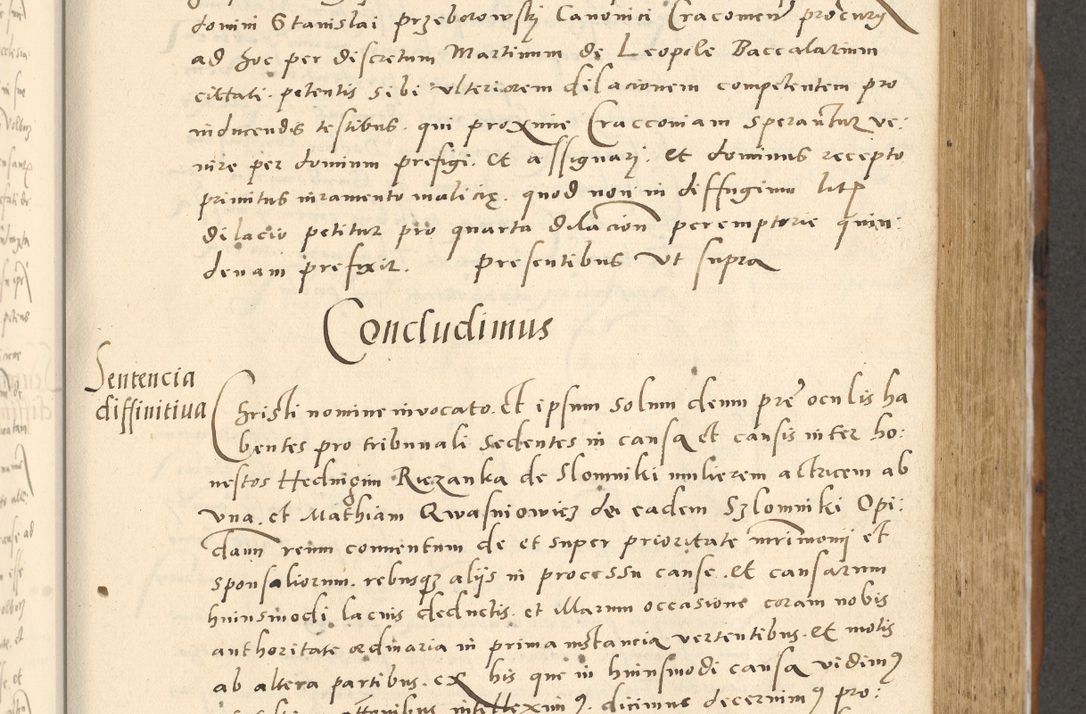 domini Stanislai przeborowskj Canonici Cracovien procurij
ad hoc per discretum Martinum de Leopole Baccalarium
cittati. petentis sibi ulteriorem dilacionem competentem pro
inducendis testibus. qui proxime Cracconiam sperantur ve:
nire per dominum prefigi. et assignarj. et dominus recepto
primitus iuramento malicię. quod non in diffugium litis
dilacio petitur pro quarta dilacion peremptorie quin:
denam prefixit. presentibus ut supra
Concludimus
Sentencia
diffinitiua
Christi nomine invocato. Et ipsum solum deum pre oculis ha
bentes pro tribunali sedentes in causa et causis inter ho:
nestos Hedvigim Ryczanka de Slomniki mulierem actricem ab
una. et Mathiam Qwasniowicz de eadem Szlomniki Opi:
dam reum conventum de et super prioritate mrimonij et
sponsaliorum. rebusq3 alijs in processu cause. et causarum
huiusmodi lacius deductis. et illarum occasione coram nobis
authoritate ordinaria in prima instancia vertentibus. et motis
ab altera partibus. ex his que in huiusmodi causa vidim9
intelleximus. dicimus decernim9 pro: